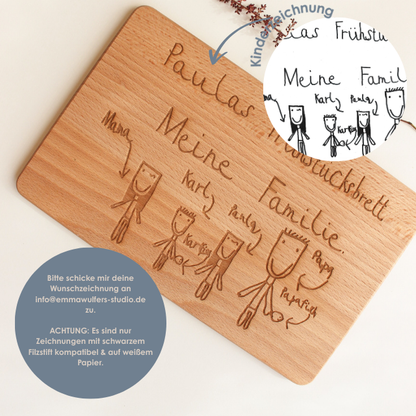 Kinderzeichnung
ias Frühstü
Meine Famil
Karl
Paula
Paulas Frühstücksbrett
Meine Familie.
Mama
Karl
Paula
Papa
Bitte schicke mir deine
Wunschzeichnung an
info@emmawulfers-studio.de
zu.
ACHTUNG: Es sind nur
Zeichnungen mit schwarzem
Filzstift kompatibel & auf weißem
Papier.